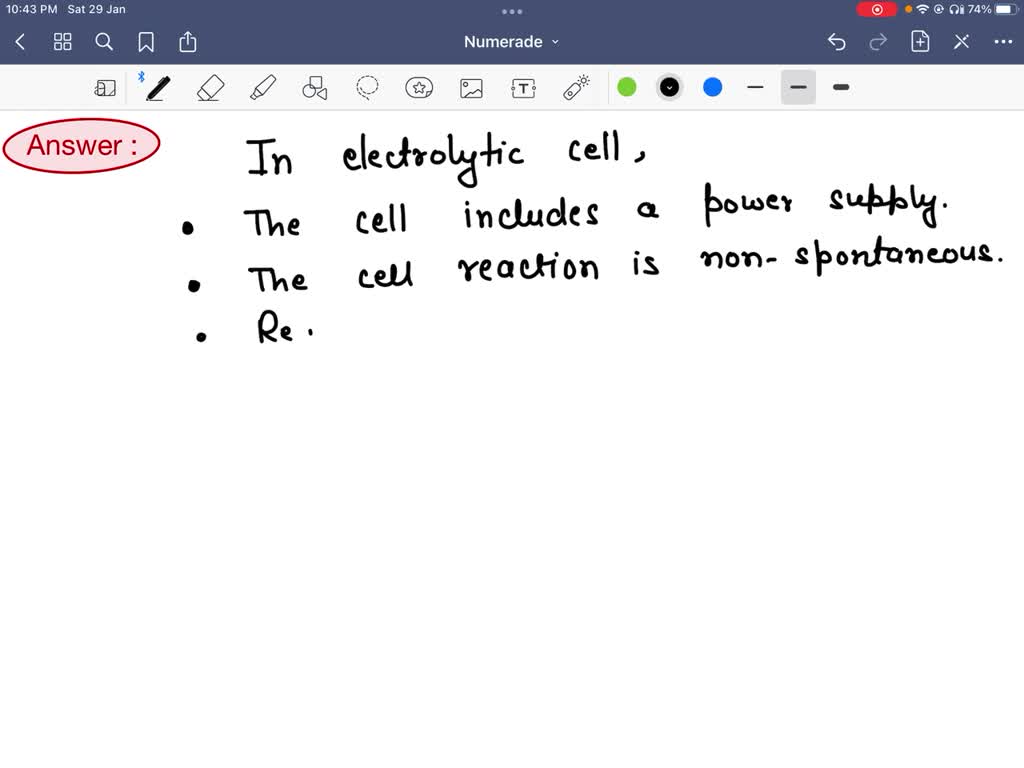 10:43 PM Sat 29 Jan 74%
Numerade
Answer :
In electrolytic cell,
• The cell includes a power supply.
• The cell reaction is non-spontaneous.
• Re.